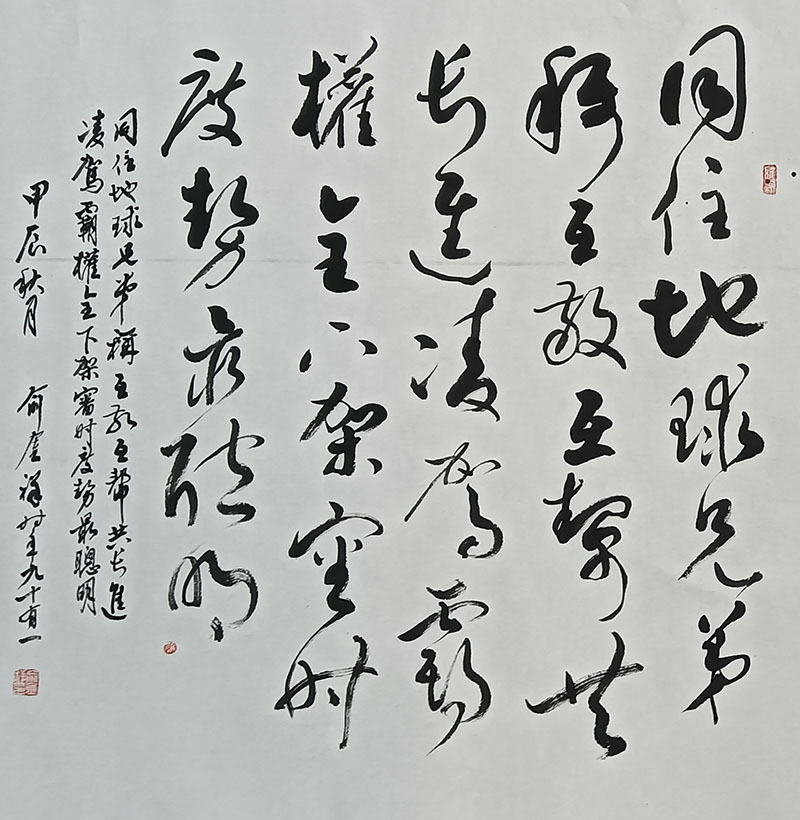 同住地球兄弟
稱互敬互幫共
长進凌駕霸
權全下架審时
度勢最聰明
同住地球兄弟稱互敬互幫共长進
凌駕霸權全下架審时度勢最聰明
甲辰秋月 俞奎祥时年九十有一